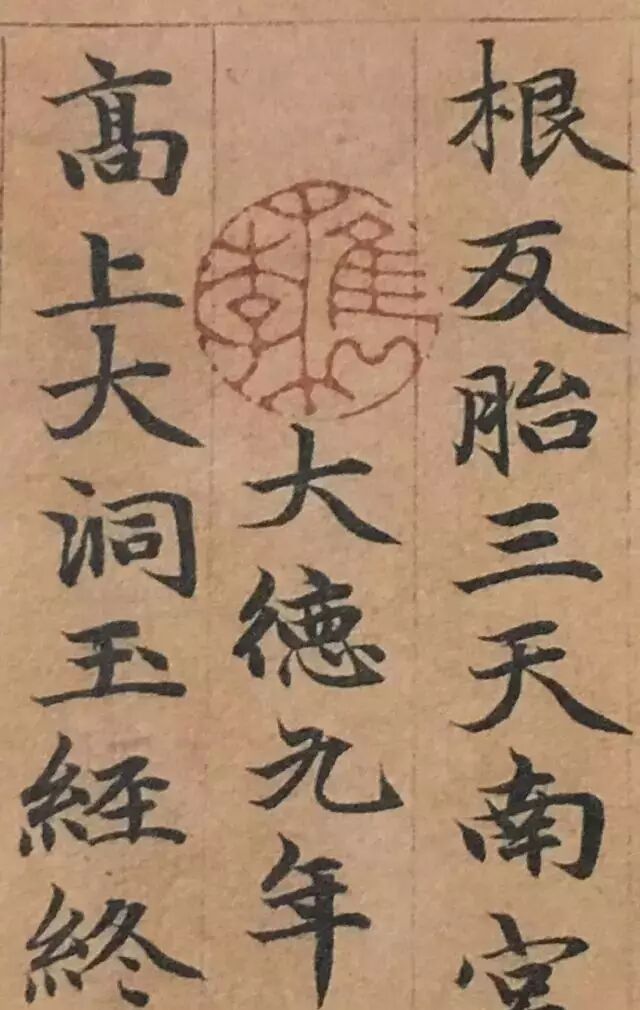 根反胎三天南宮
檇李
大德九年
髙上大洞玉經終